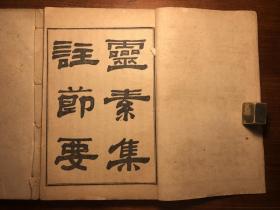 靈素集
註節要